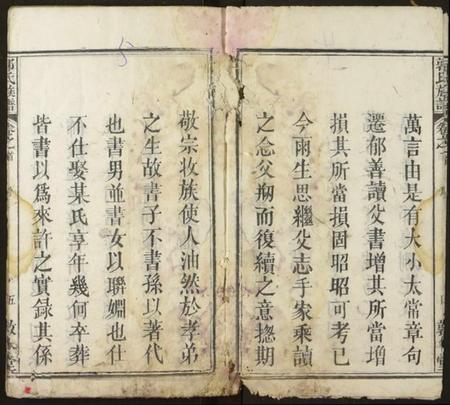 郭氏族譜
卷之首
萬言由是有大小太常章句
遷郁善讀父書增其所當增
損其所當損固昭昭可考已
今雨生思繼父志手家乘讀
之念父刱而復續之意揔期
敬宗收族使人油然於孝弟
之生故書子不書孫以著代
也書男並書女以聯婣也仕
不仕娶某氏享年幾何卒葬
皆書以爲來許之實錄其係
郭氏族譜
卷之首
五